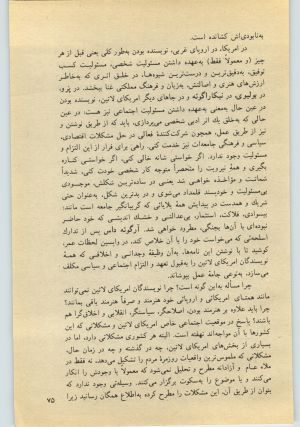 به‌نابودی‌اش کشانده است.
در امریکا، در اروپای غربی، نویسنده بودن به‌طور کلی یعنی قبل از هر
چیز (و معمولاً فقط) به‌عهده داشتن مسئولیت شخصی، مسئولیت کسب
توفیق، به‌دقیق‌ترین و درست‌ترین شیوه‌ها، در خلق اثری که به‌خاطر
ارزش‌های هنری و اصالتش، به‌زبان و فرهنگ مملکتی غنا ببخشد. در پرو،
در بولیوی، در نیکاراگوئه و در جاهای دیگر امریکای لاتین، نویسنده بودن
در عین حال به‌معنی به‌عهده داشتن مسئولیت اجتماعی نیز هست: در عین
حالی که به‌خلق یک اثر ادبی شخصی می‌پردازید، باید که از طریق نوشتن و
نیز از طریق عمل، همچون شرکت‌کنندهٔ فعالی در حل مشکلات اقتصادی،
سیاسی و فرهنگی جامعه‌ات نیز خدمت کنی. راهی برای فرار از این التزام و
مسئولیت وجود ندارد. اگر خواستی شانه خالی کنی، اگر خواستی کناره
بگیری و همهٔ نیرویت را منحصراً متوجه کار شخصی خودت کنی، شدیداً
شماتت و مؤاخذه خواهی شد یعنی در ساده‌ترین شکلش، موجودی
بی‌مسئولیت و خودپسند قلمداد می‌شوی و در بدترین شکل، به‌عنوان حتی
شریک و همدست در پیدایش همهٔ بلایائی که گریبانگیر جامعه است مانند:
بیسوادی، فلاکت، استثمار، بی‌عدالتی و خشک اندیشی که خود حاضر
نبوده‌ای با آن‌ها بجنگی، مطرود خواهی شد. آرگوئه داس پس از تدارک
اسلحه‌ئی که می‌خواست خود را با آن خلاص کند، در واپسین لحظات عمر،
کوشید تا با نوشتن این نامه‌ها، به‌آن وظیفهٔ وجدانی و اخلاقی که همهٔ
نویسندگان امریکای لاتین را به‌قبول تعهد و التزام اجتماعی و سیاسی مکلف
می‌سازد، به‌نوعی جامهٔ عمل بپوشاند.
چرا مسأله به‌این گونه است؟ چرا نویسندگان امریکای لاتین نمی‌توانند
مانند همتای امریکائی و اروپائی خود هنرمند و صرفاً هنرمند باقی بمانند؟
چرا باید علاوه بر هنرمند بودن، اصلاحگر، سیاستگر، انقلابی و اخلاق‌گرا هم
باشند؟ پاسخ در موقعیت اجتماعی خاص امریکای لاتین و مشکلاتی که این
کشورها با آن مواجه‌اند نهفته است. البته هر کشوری مشکلاتی دارد، اما در
بسیاری از بخش‌های امریکای لاتین، چه در گذشته و چه در زمان حال،
مشکلاتی که ملموس‌ترین واقعیات روزمرهٔ مردم را تشکیل می‌دهد، نه فقط در
ملاء عام و آزادانه مطرح و تحلیل نمی‌شود که معمولاً یا وجودش را انکار
می‌کنند و یا موضوع را به‌سکوت برگزار می‌کنند. وسیله‌ئی وجود ندارد که
بتوان از طریق آن، این مشکلات را مطرح کرده به‌اطلاع همگان رسانید زیرا
۷۵